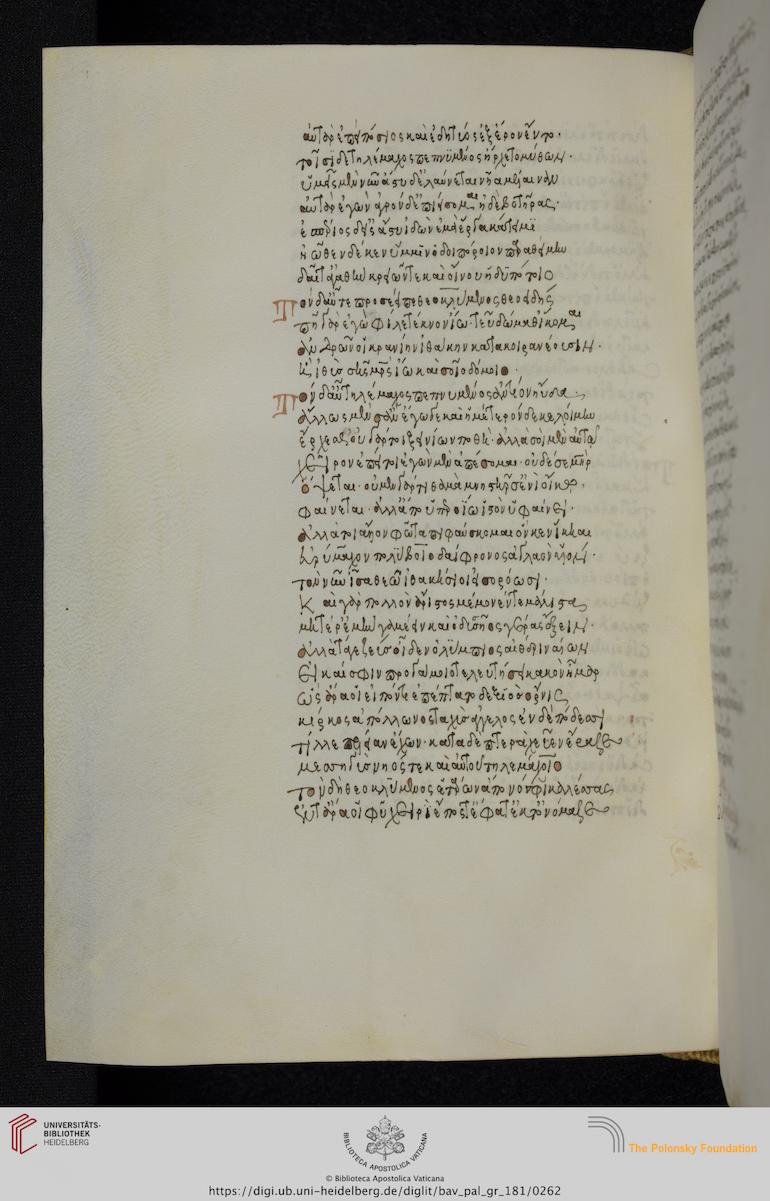 αὐτὰρ ἐπεὶ πόσιος καὶ ἐδητύος ἐξ ἔρον ἕντο·
τοῖσι δὲ τηλέμαχος πεπνυμένος ἤρχετο μύθων·
ὑμεῖς μὲν νῦν ἄστυ δ' ἐλαύνετε νῆα μέλαιναν
αὐτὰρ ἐγὼν ἀγρόνδε ἐπιείσομαι ἠδὲ βοτῆρας·
ἑσπέριος δ' εἰς ἄστυ ἰδὼν ἐμὰ ἔργα κάτειμι
ἠῶθεν δέ κεν ὔμμιν ὁδοιπόριον παραθείμην
δαῖτ' ἀγαθὴν κρειῶν τε καὶ οἴνου ἡδυπότοιο
Τὸν δ' αὖτε προσέειπε θεοκλύμενος θεοειδής
πῆ γὰρ ἐγὼ φίλε τέκνον ἴω· τεῦ δώμαθ' ἵκωμαι
ἀνδρῶν οἳ κραναὴν ἰθάκην κάτα κοιρανέουσιν·
ἦ ἰθὺς σῆς μητρὸς ἴω καὶ σοῖο δόμοιο·
Τὸν δ' αὖ τηλέμαχος πεπνυμένος ἀντίον ηὔδα·
ἄλλως μέν σ' ἂν ἔγωγε καὶ ἡμέτερόνδε κελοίμην
ἔρχεσθ' οὐ γάρ τι ξενίων ποθή· ἀλλὰ σοὶ αὐτῷ
χεῖρον ἐπεί τοι ἐγὼ μὲν ἀπέσομαι· οὐδέ σε μήτηρ
ὄψεται· οὐ μὲν γάρ τι θαμὰ μνηστῆρσ' ἐνὶ οἴκῳ
φαίνεται· ἀλλ' ἀπὸ τῶν ὑπερωΐω ἱστὸν ὑφαίνει·
ἀλλά τοι ἄλλον φῶτα πιφαύσκομαι ὅν κεν ἵκηαι
εὐρύμαχον πολύβοιο δαΐφρονος ἀγλαὸν υἱόν·
τὸν νῦν ἶσα θεῷ ἰθακήσιοι εἰσορόωσι·
Καὶ γὰρ πολλὸν ἄριστος μέμονέν τε μάλιστα
μητέρ' ἐμὴν γαμέειν καὶ ὀδυσσῆος γέρας ἕξειν·
ἀλλὰ τά γε ζεὺς οἶδεν ὀλύμπιος αἰθέρι ναίων
εἰ καί σφιν πρὸ γάμοιο τελευτήσει κακὸν ἦμαρ
ὣς ἄρα οἱ εἰπόντι ἐπέπτατο δεξιὸς ὄρνις
κίρκος ἀπόλλωνος ταχὺς ἄγγελος ἐν δὲ πόδεσσι
τίλλε πέλειαν ἔχων· κατὰ δὲ πτερὰ χεῦεν ἔραζε
μεσσηγὺς νηός τε καὶ αὐτοῦ τηλεμάχοιο
τὸν δὲ θεοκλύμενος ἑτάρων ἀπονόσφι καλέσσας
ἔν τ' ἄρα οἱ φῦ χειρὶ ἔπος τ' ἔφατ' ἔκ τ' ὀνόμαζε
UNIVERSITÄTS-
BIBLIOTHEK
HEIDELBERG
BIBLIOTECA APOSTOLICA VATICANA
The Polonsky Foundation
© Biblioteca Apostolica Vaticana
https://digi.ub.uni-heidelberg.de/diglit/bav_pal_gr_181/0262